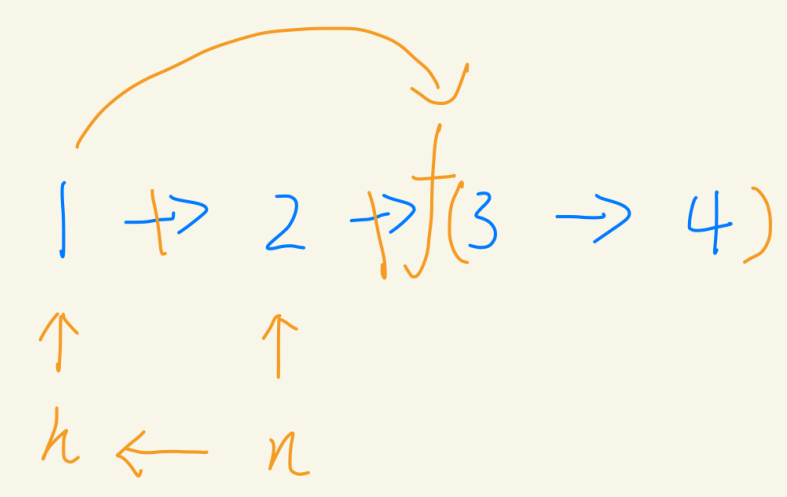 1 → 2 → f(3 → 4)
h ← n